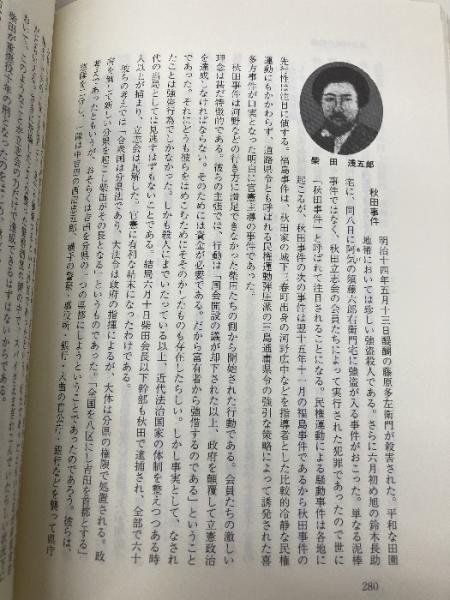 柴田　浅五郎
秋田事件
明治十四年五月十三日醍醐の藤原多左衛門が殺害された。平和な田園
地帯においては珍しい強盗殺人である。さらに六月初め旭の鈴木長助
宅に、同八日に阿気の須藤六郎右衛門宅に強盗が入る事件がおこった。単なる泥棒
事件ではなく、秋田立志会の会員たちによって実行された犯罪であったので世に
「秋田事件」と呼ばれて注目されることになる。民権運動による騒動事件は各地に
起こるが、秋田事件の次の事件は翌十五年十一月の福島事件であるから秋田事件の
先行性は注目に値する。福島事件は、秋田家の城下三春町出身の河野広中などを指導者とした比較的冷静な民権
運動にもかかわらず、道路県令とも呼ばれる民権運動弾圧派の三島通庸県令の強引な策略によって誘発された喜
多方事件が口実となった明白に官憲主導の事件であった。
秋田事件は河野などの行き方に満足できなかった柴田たちの側から開始された行動である。会員たちの激しい
理念は甚だ特徴的である。彼らの主張では、行動は「国会開設の議が却下された以上、政府を顛覆して立憲政治
を達成しなければならない。そのためには資金が必要である。だから富有者から強借するのである」ということ
であった。それにどうも彼らをはめこむためにそそのかしたものも存在したらしい。しかし事実として、なされ
たことは強盗行為でしかなかった。しかも殺人にまでいたっている以上、近代法治国家の体制を整えつつある時
代の当局としては見逃すはずもないことである。結局六月十日柴田会長以下幹部も秋田で逮捕され、全部で六十
人以上が捕まり、立志会は瓦解した。官憲に有利な結末になったわけである。
彼らの考えでは「合衆国は分県法であり、大法令は政府の指揮によるが、大体は分県の権限で処置される。政
府を倒して新しい分県を起こし柴田がその長となる」というものであった。「全国を八区にし吉田を首都とする」
考えであったともいうが、おそらくは吉田を分県の一つの県都にしようということであったのであろう。彼らは、
280